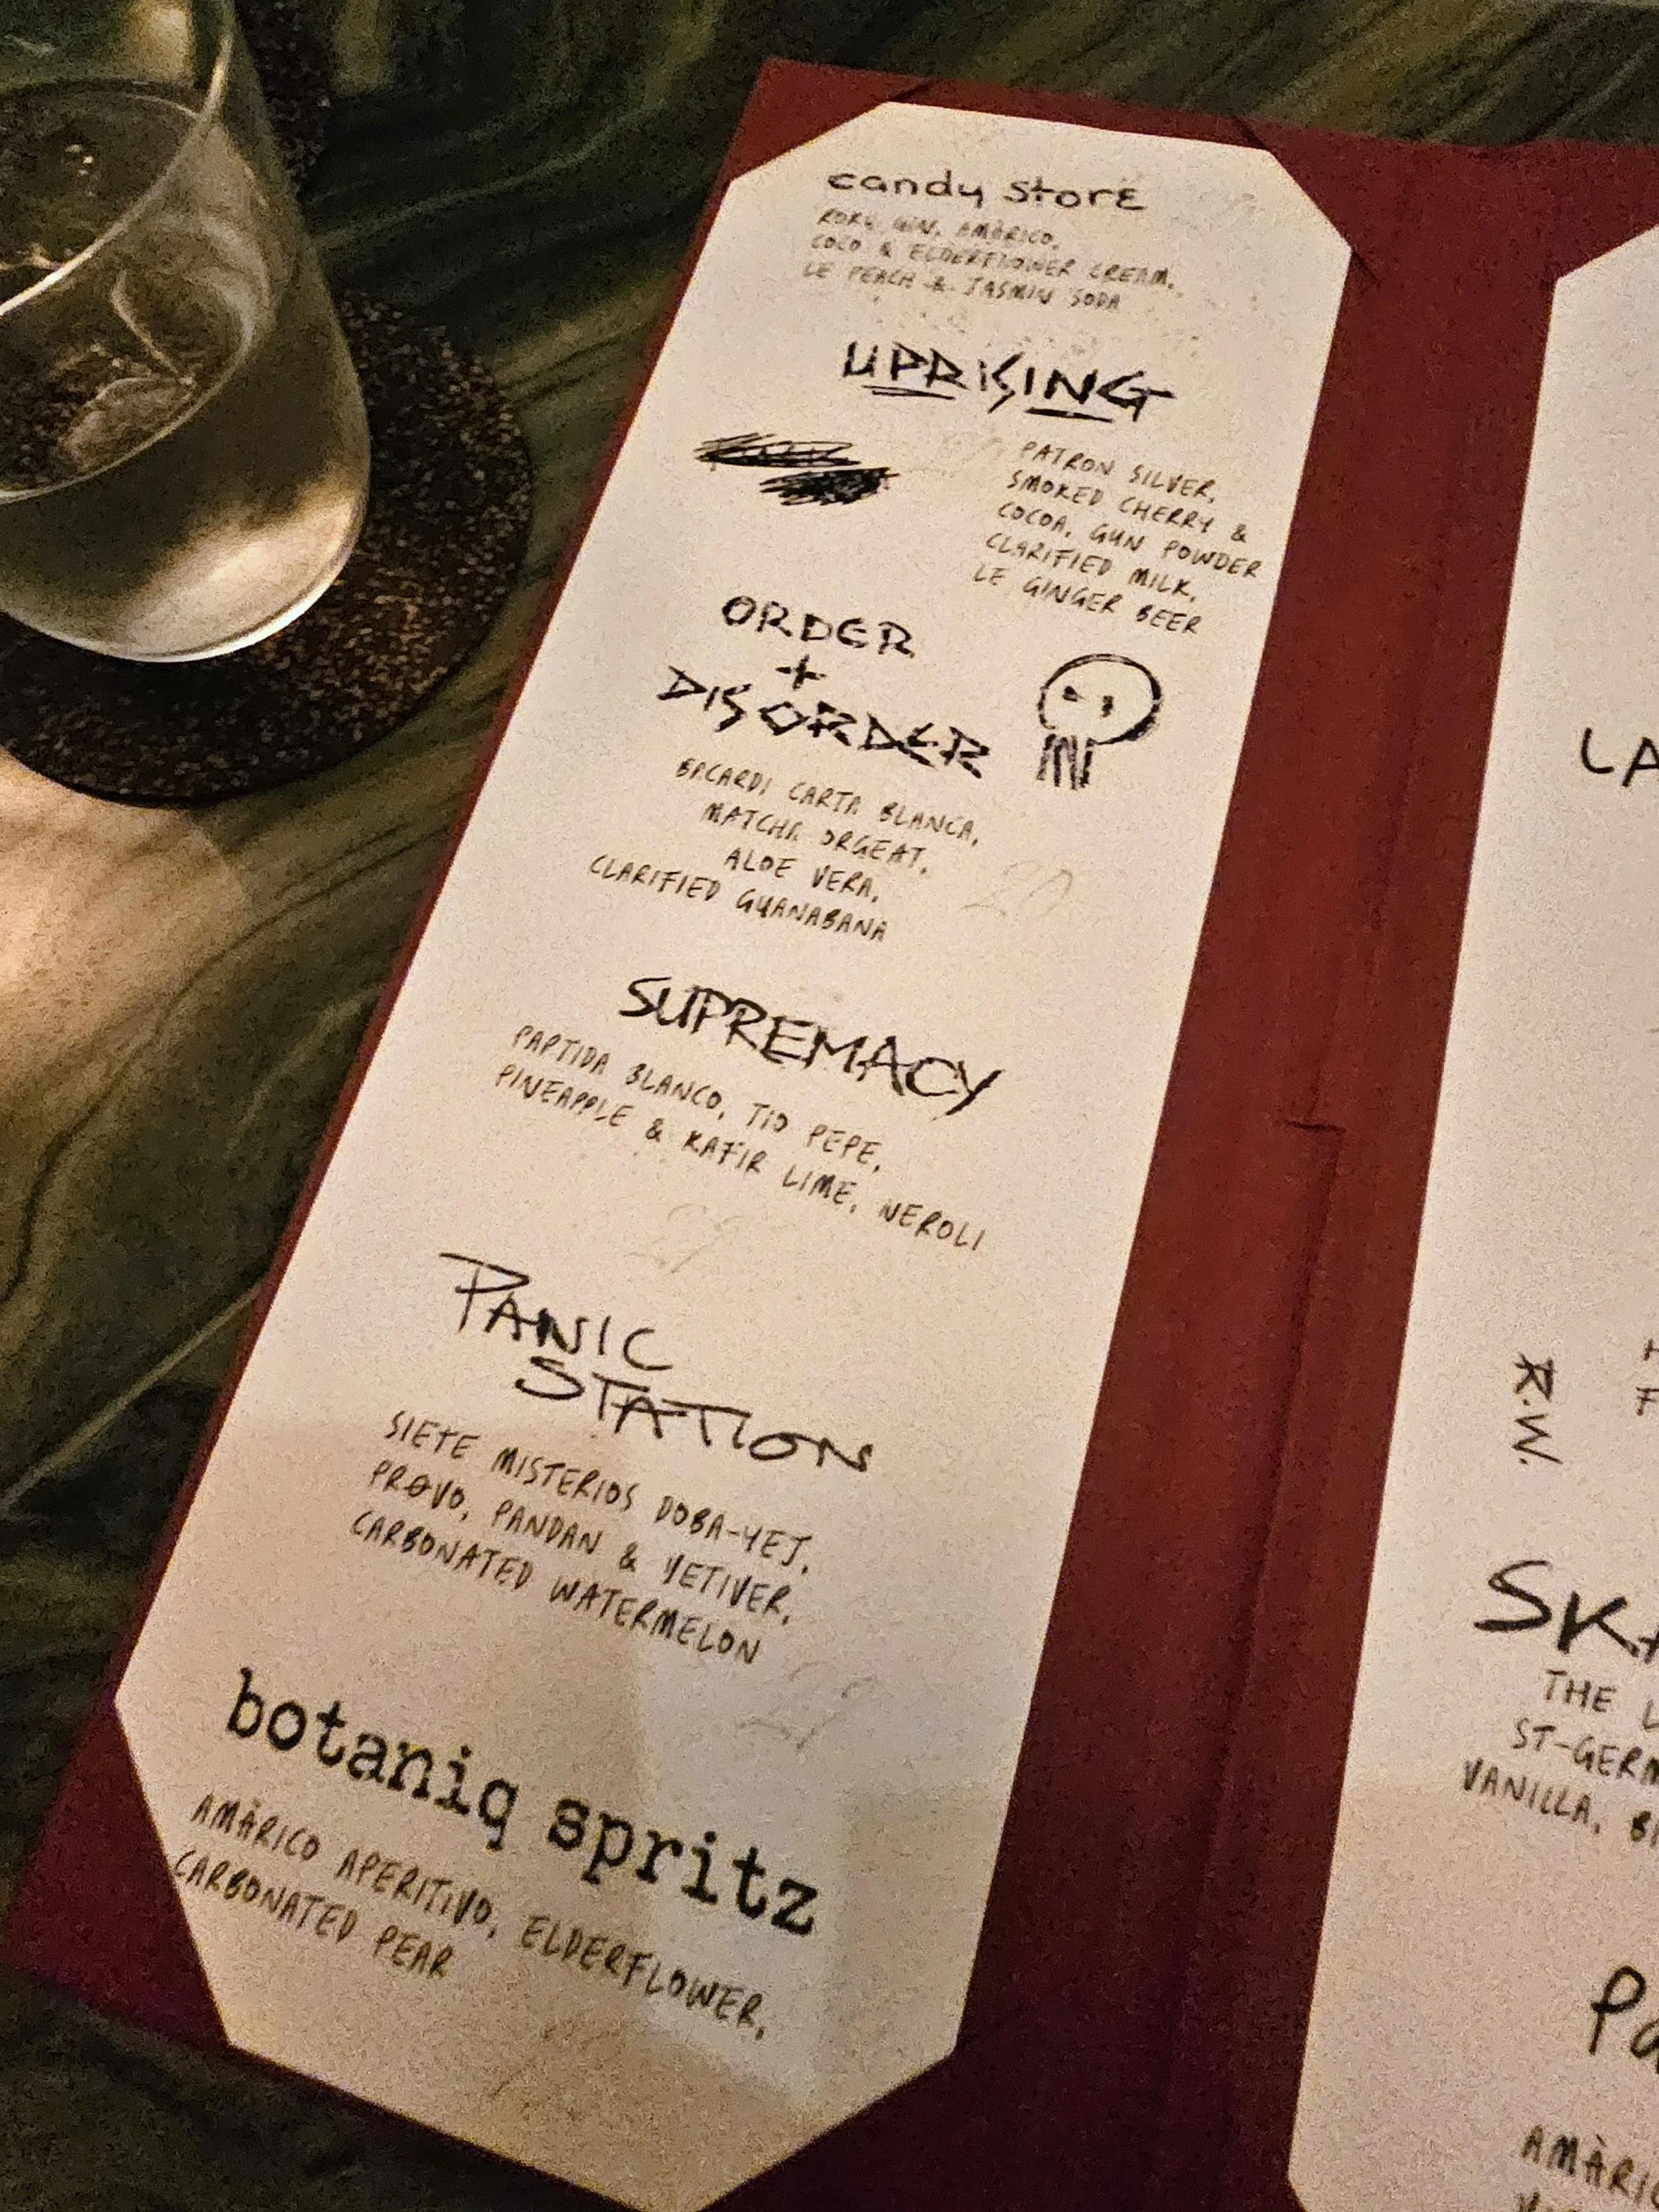 candy store
ROKU GIN, AMÀRICO,
COCO & ELDERFLOWER CREAM,
LE PEACH & JASMIN SODA
UPRISING
PATRON SILVER,
SMOKED CHERRY &
COCOA, GUN POWDER
CLARIFIED MILK,
LE GINGER BEER
ORDER
+
DISORDER
BACARDI CARTA BLANCA,
MATCHA ORGEAT,
ALOE VERA,
CLARIFIED GUANABANA
20
SUPREMACY
PAPTIDA BLANCO, TIO PEPE,
PINEAPPLE & KAFIR LIME, NEROLI
PANIC
STATION
SIETE MISTERIOS DOBA-YEJ,
PROVO, PANDAN & VETIVER,
CARBONATED WATERMELON
botaniq spritz
AMÀRICO APERITIVO, ELDERFLOWER,
CARBONATED PEAR
LA
R.W.
SKA
THE L
ST-GERM
VANILLA, B
Pa
AMÀRIC